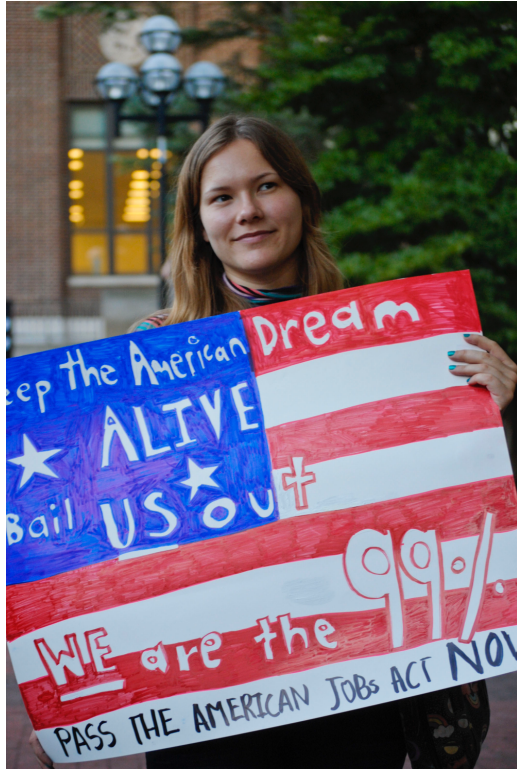 eep the American Dream
ALIVE
Bail US out
WE are the 99%.
PASS THE AMERICAN JOBS ACT NOW